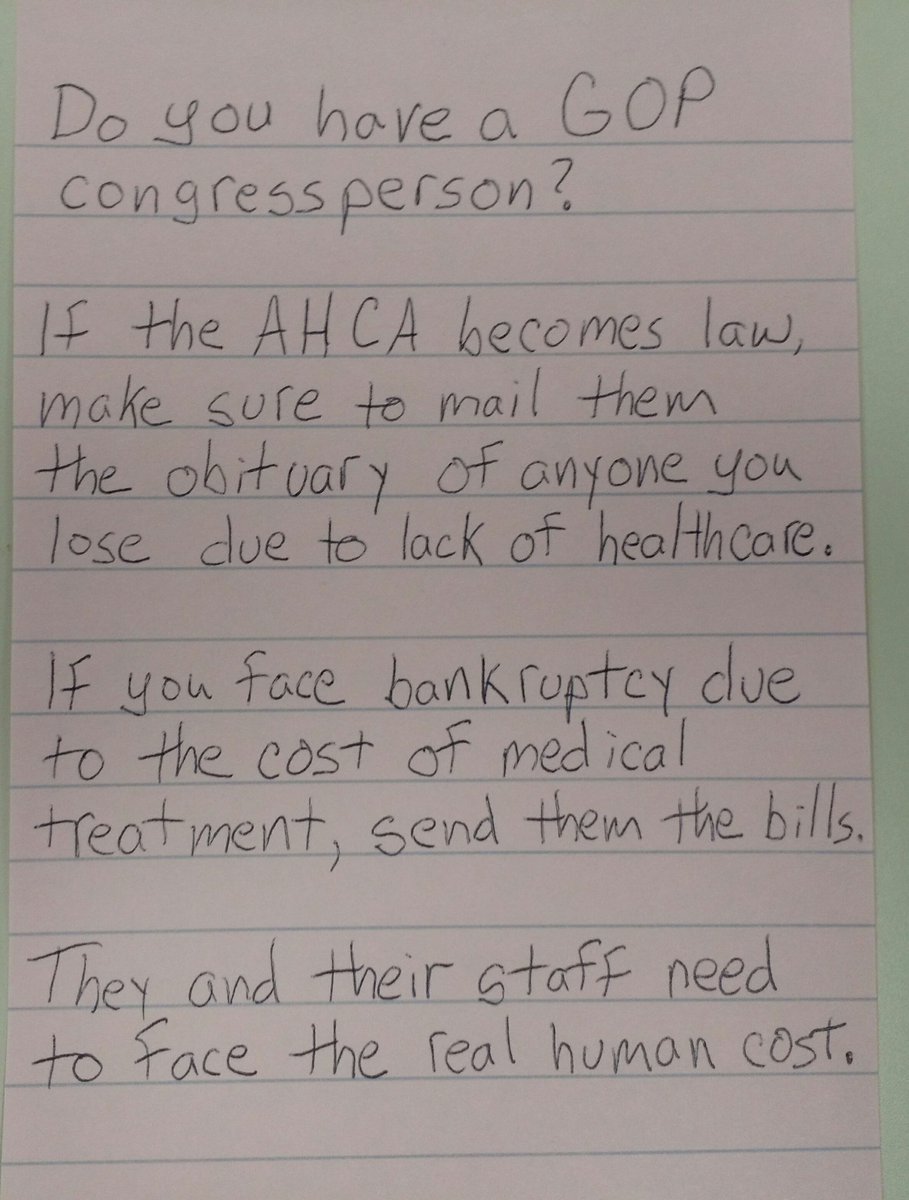 Do you have a GOP
congressperson?
If the AHCA becomes law,
make sure to mail them
the obituary of anyone you
lose due to lack of healthcare.
If you face bankruptcy due
to the cost of medical
treatment, send them the bills.
They and their staff need
to face the real human cost.